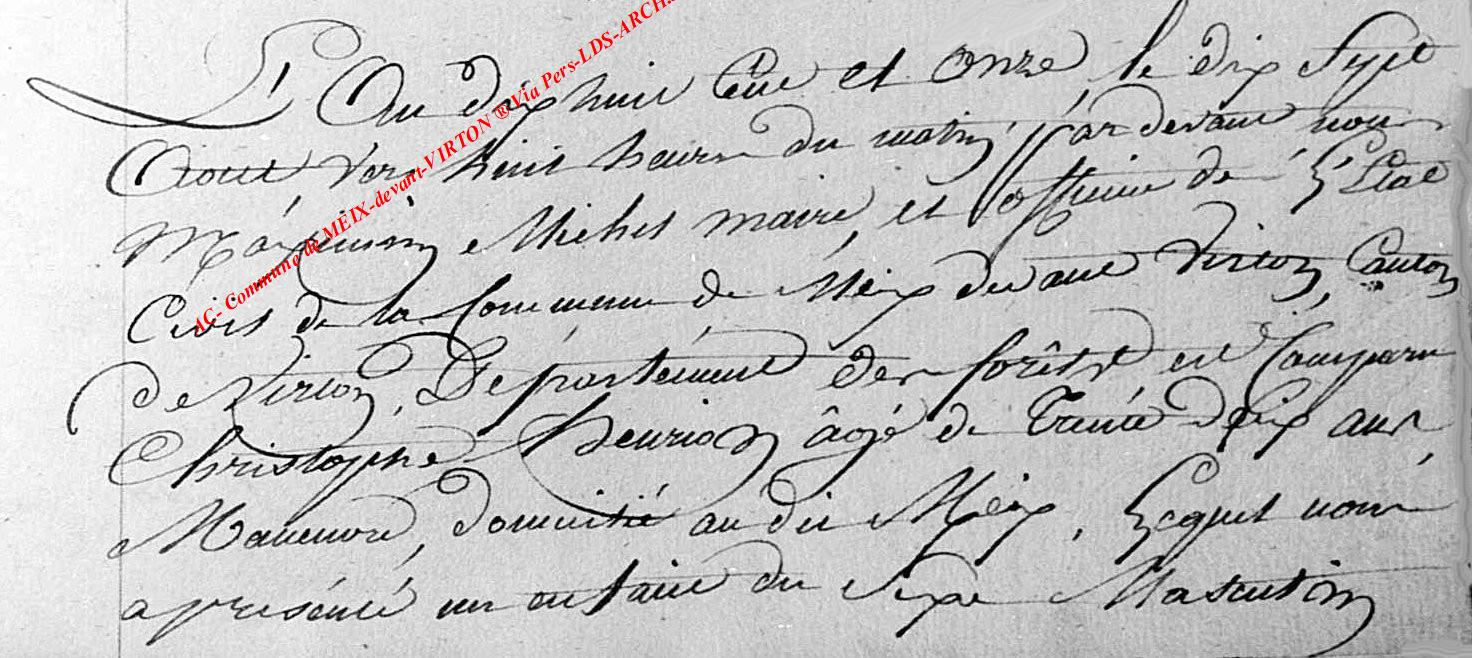 L'An dix huit Cent et Onze, le dix Sept
Aout vers huit heures du matin, pardevant nous
Maximin Michel maire, et officier de L'Etat
Civil de la Commune de Meix devant Virton, Canton
de Virton, Departement des forêts est Comparu
Christophe Henrion âgé de Trente deux ans
Manœuvre, domicilié au dit Meix, Lequel nous
a présenté un enfant du Sexe Masculin
AC- Commune de MEIX-devant-VIRTON ® Via Pers-LDS-ARCH.